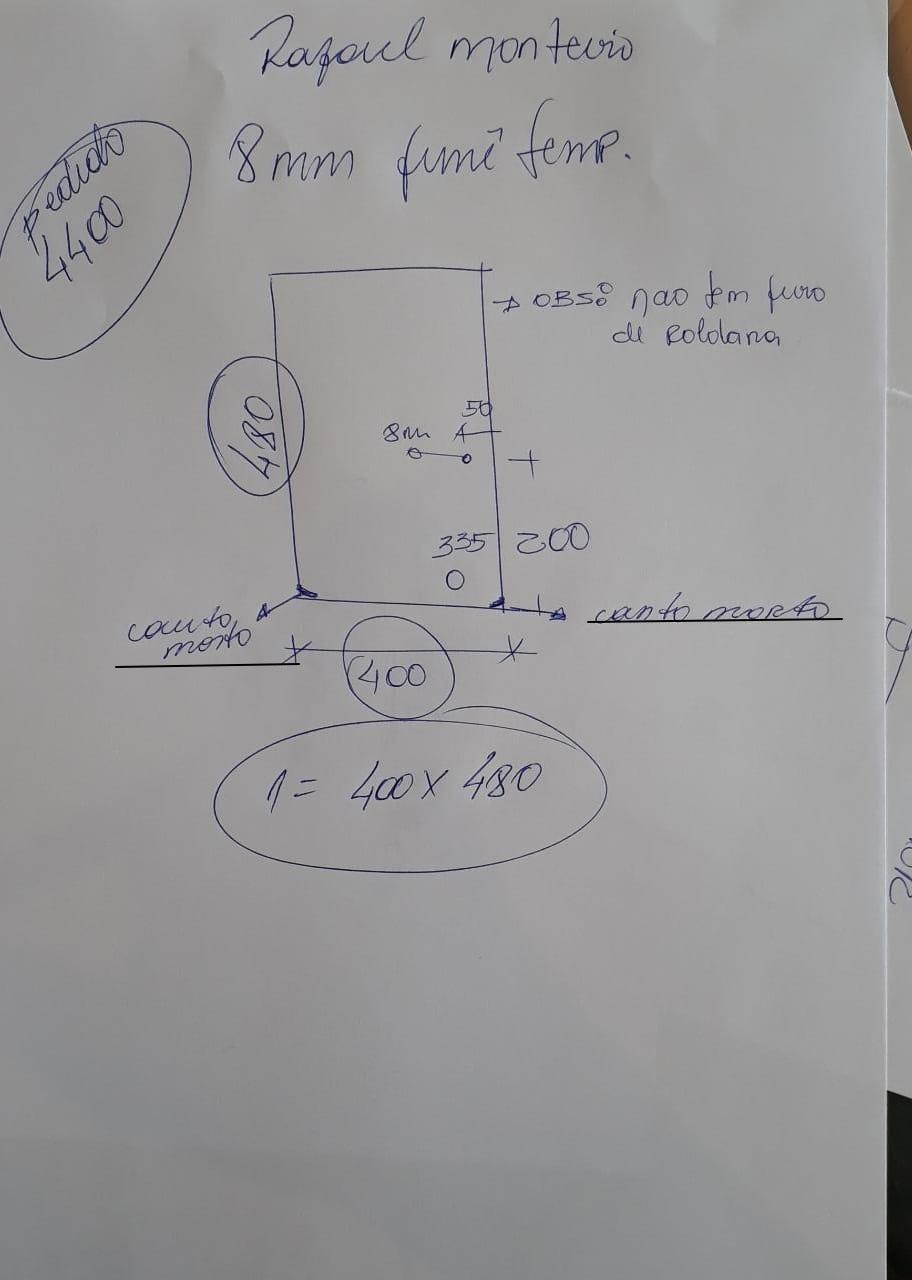 Rafael monteiro
8mm fumê temp.
pedido
4400
→ OBS: nao tem furo
de Roldana
480
50
8m
335
200
canto
morto
canto morto
400
1 = 400 x 480